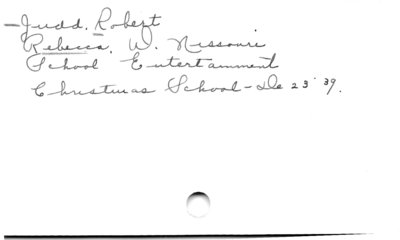 Judd, Robert
Rebecca, W. Missouri
School Entertainment
Christmas School - De 23 '39.